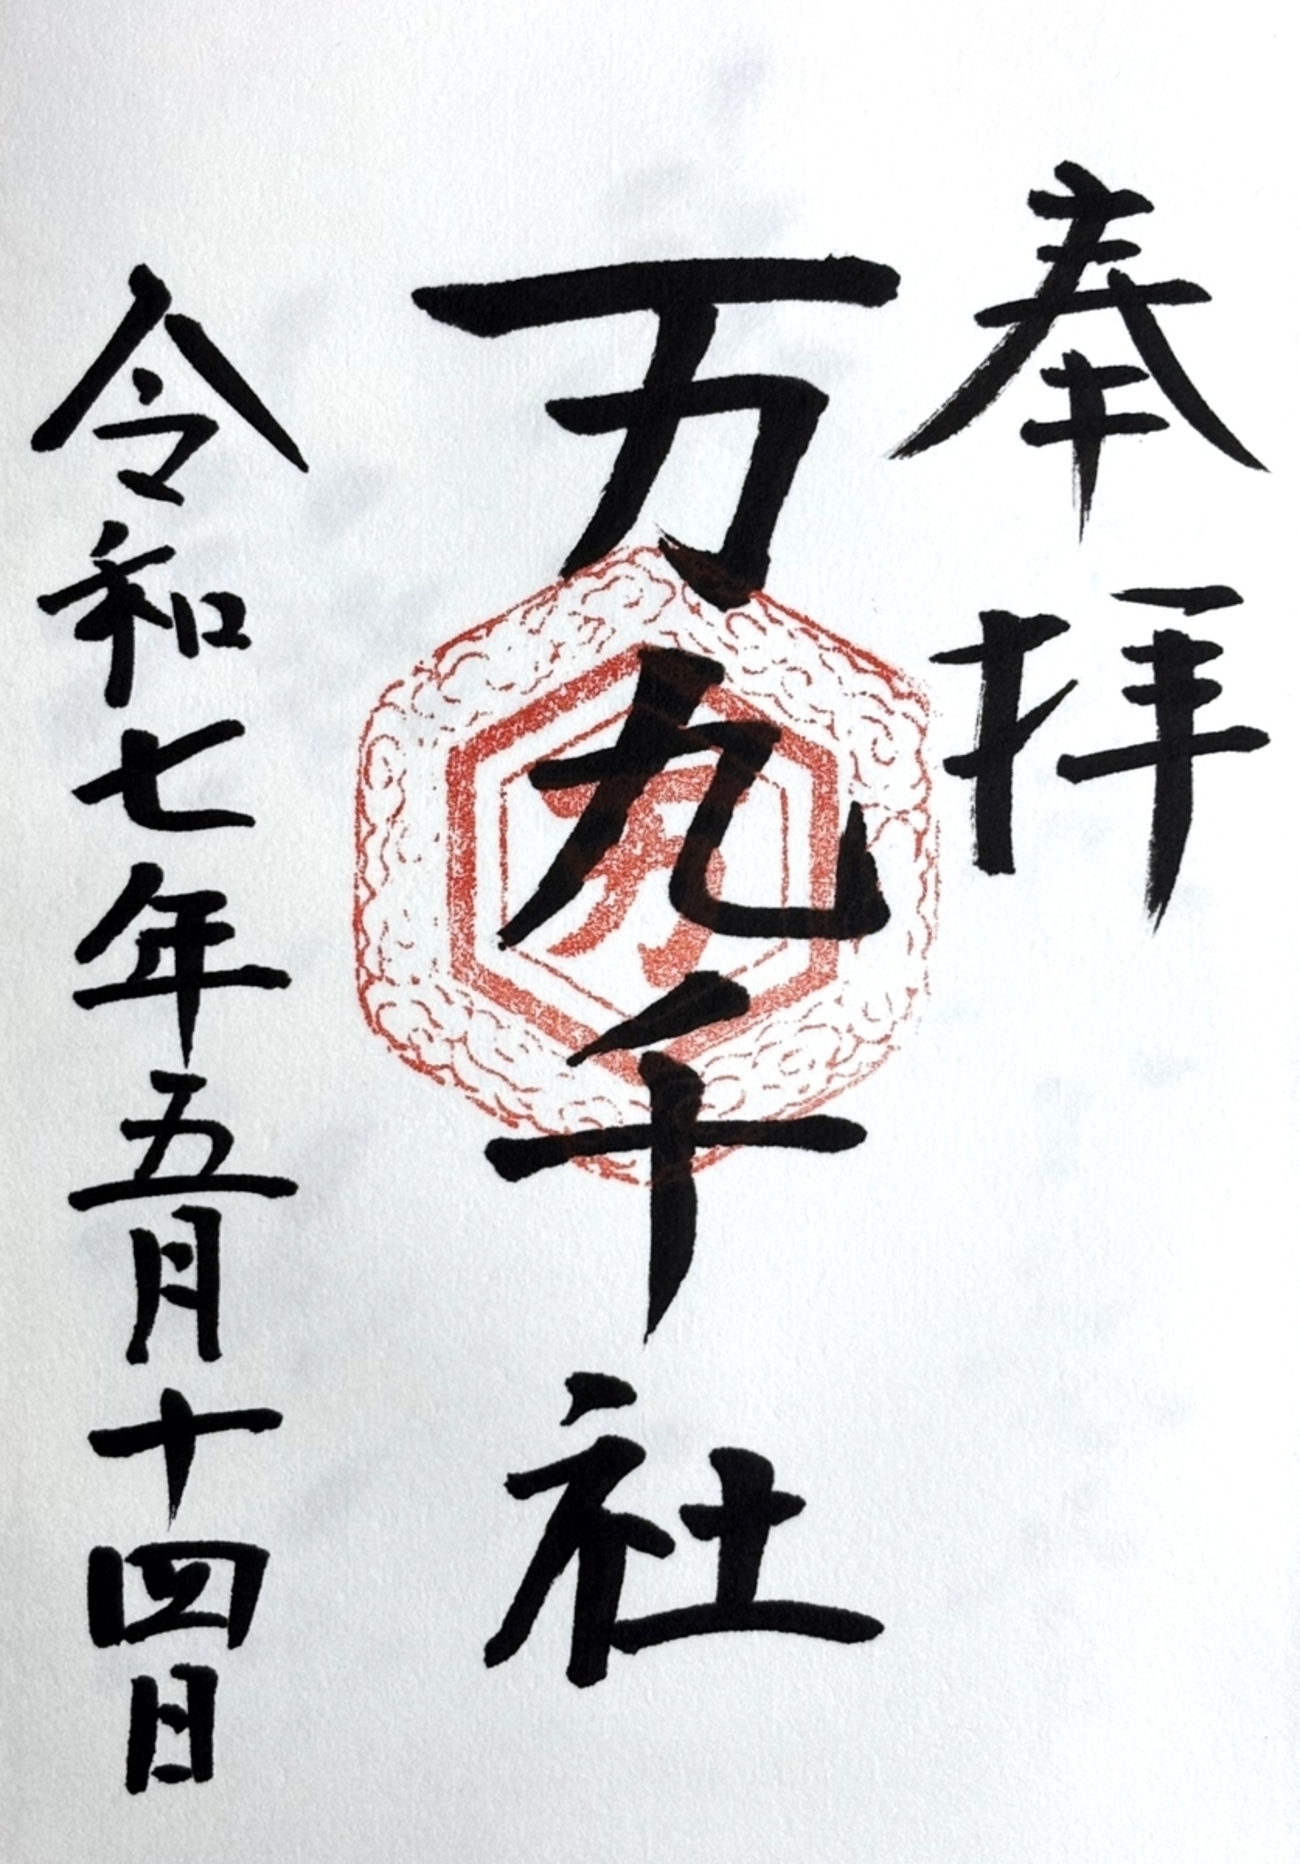 奉拝
万九千社
令和七年五月十四日